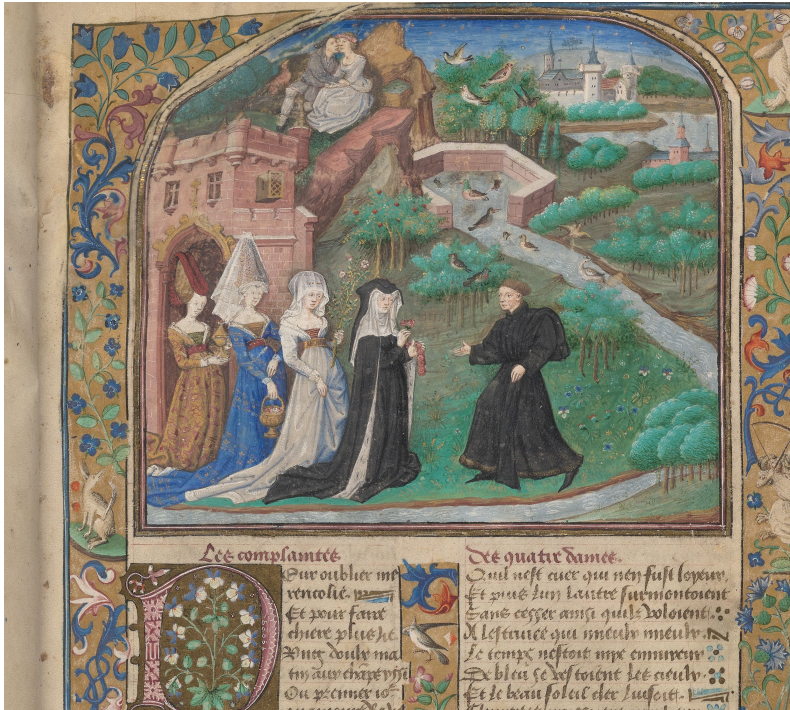 Les complaintes
Des quatre dames.
Pour oublier me
rencolie.
Et pour faire
chiere plus lie
Ung doulx ma
tin aux champs yssi
Ou premier io
Quil nest cuer qui nen fust ioyeux,
Et puis lun lautre surmontoient
Sans cesser ainsi quilz voloient
A lestriuee qui mieulx mieulx
Le temps nestoit mye ennuyeux
De bleu se vestoient les cieulx
Et le beau soleil cler luisoit